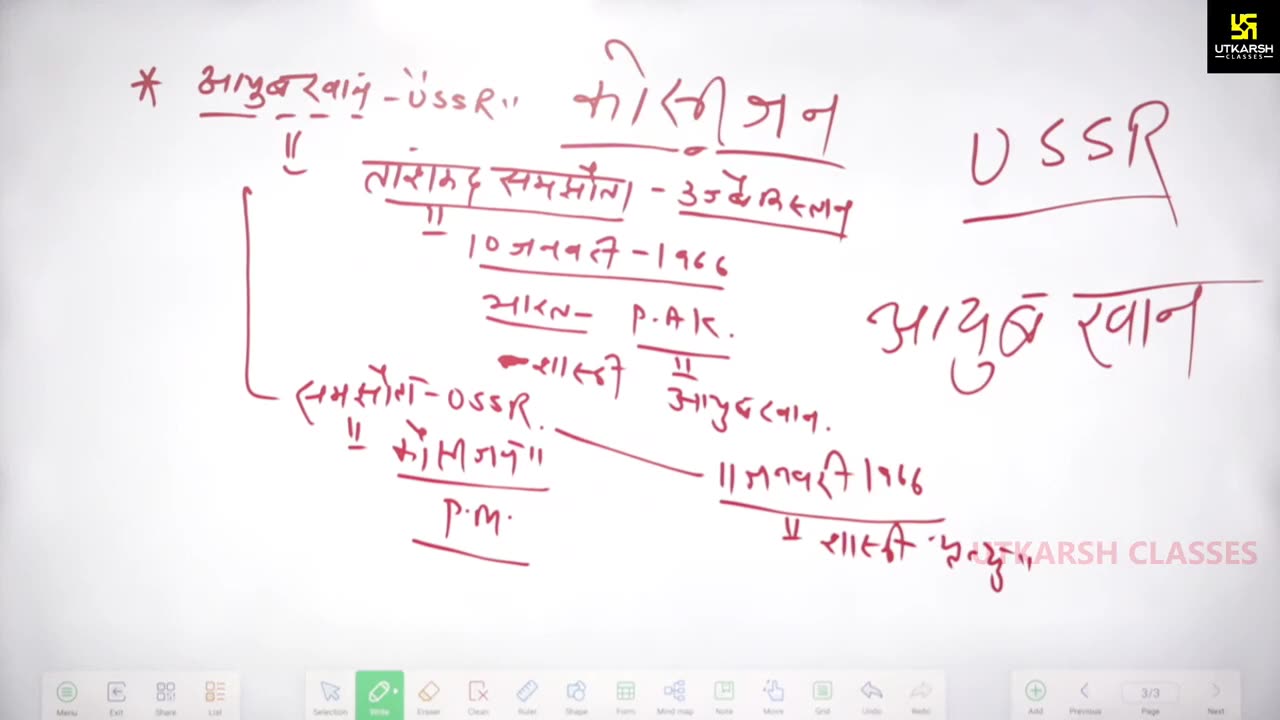 UTKARSH
CLASSES
* आयुब खान - "USSR"
कोसीजन
USSR
ताशंकद समझौता - उज्बेकिस्तान
10 जनवरी - 1966
भारत - P.AK.
शास्त्री
आयुब खान.
आयुब खान
समझौता - USSR.
"कोसीजन"
P.M.
11 जनवरी 1966
शास्त्री "मृत्यु"
UTKARSH CLASSES
Menu Exit Share List Selection Write Eraser Clean Ruler Shape Form Mind map Note Move Grid Undo Redo Add Previous 3/3 Page Next